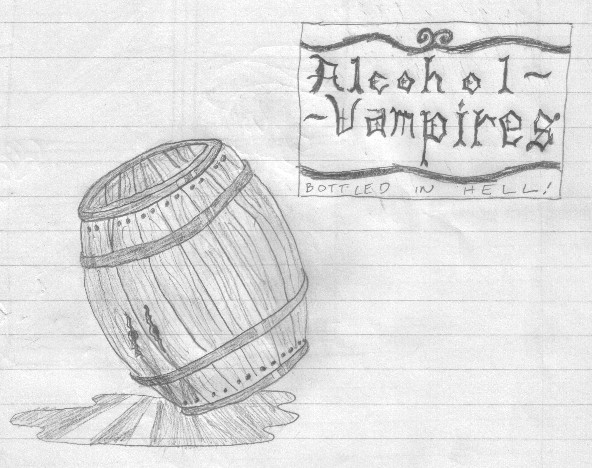 Alcohol~
~Vampires
BOTTLED IN HELL!